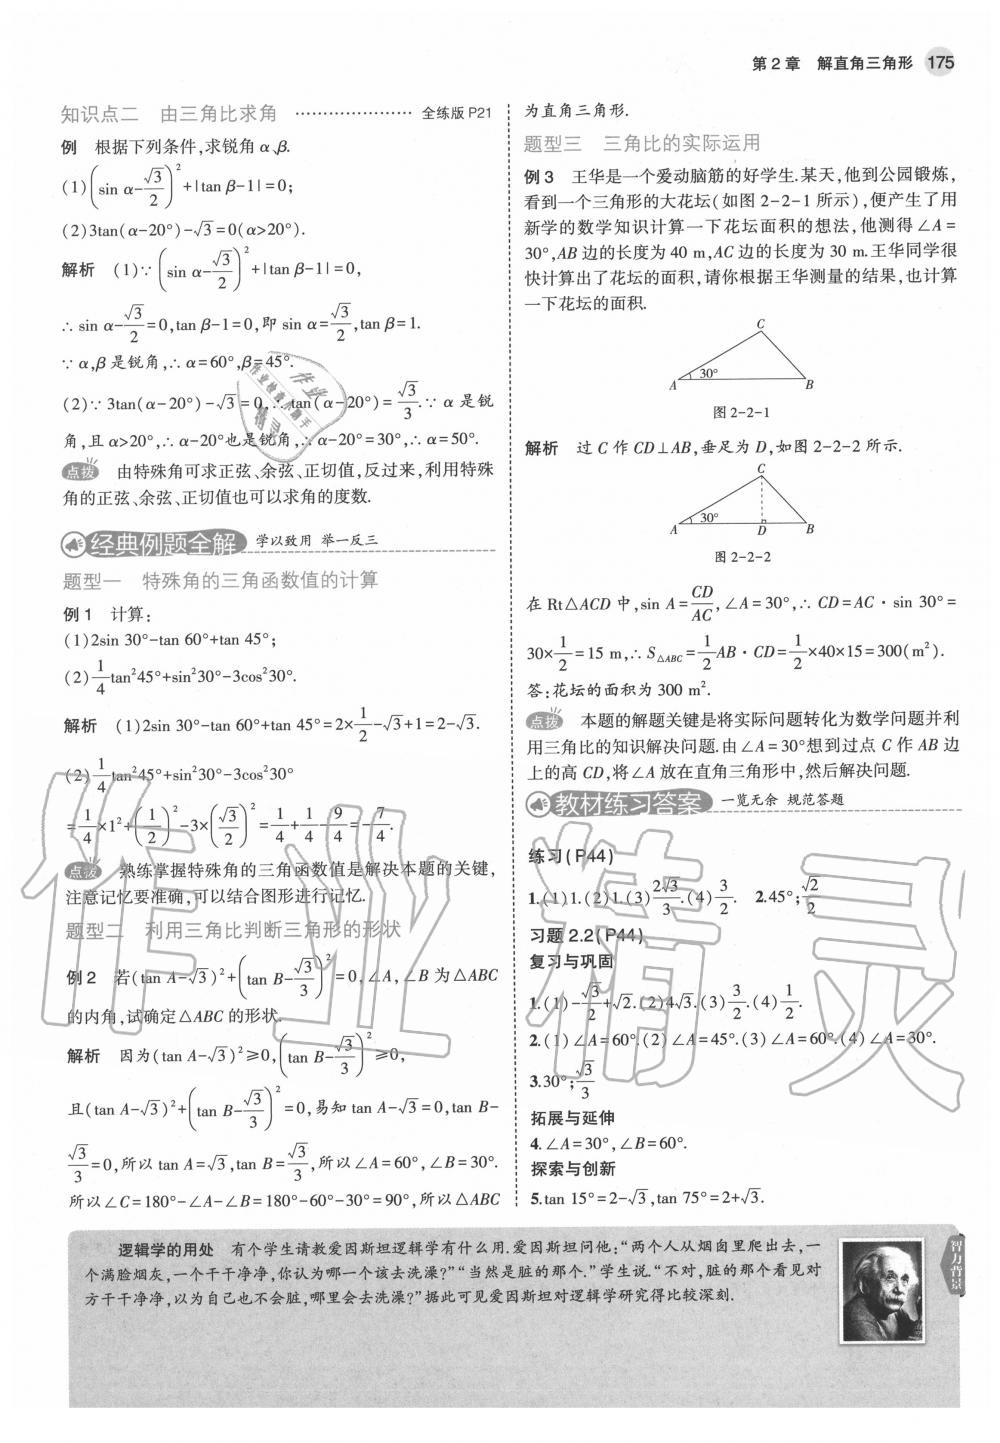 第2章 解直角三角形 175
知识点二 由三角比求角 ………………… 全练版 P21
例 根据下列条件,求锐角 α、β.
(1)(sin α-√3/2)²+|tan β-1|=0;
(2)3tan(α-20°)-√3=0(α>20°).
解析 (1)∵(sin α-√3/2)²+|tan β-1|=0,
∴sin α-√3/2=0,tan β-1=0,即 sin α=√3/2,tan β=1.
∵α,β 是锐角,∴α=60°,β=45°.
(2)∵3tan(α-20°)-√3=0,∴tan(α-20°)=√3/3.∵α 是锐
角,且 α>20°,∴α-20°也是锐角,∴α-20°=30°,∴α=50°.
点拨 由特殊角可求正弦、余弦、正切值,反过来,利用特殊
角的正弦、余弦、正切值也可以求角的度数.
经典例题全解 学以致用 举一反三
题型一 特殊角的三角函数值的计算
例1 计算:
(1)2sin 30°-tan 60°+tan 45°;
(2)1/4tan²45°+sin²30°-3cos²30°.
解析 (1)2sin 30°-tan 60°+tan 45°=2×1/2-√3+1=2-√3.
(2)1/4tan²45°+sin²30°-3cos²30°
=1/4×1²+(1/2)²-3×(√3/2)²=1/4+1/4-9/4=-7/4.
点拨 熟练掌握特殊角的三角函数值是解决本题的关键,
注意记忆要准确,可以结合图形进行记忆.
题型二 利用三角比判断三角形的形状
例2 若(tan A-√3)²+(tan B-√3/3)²=0,∠A,∠B 为△ABC
的内角,试确定△ABC 的形状.
解析 因为(tan A-√3)²≥0,(tan B-√3/3)²≥0,
且(tan A-√3)²+(tan B-√3/3)²=0,易知 tan A-√3=0,tan B-
√3/3=0,所以 tan A=√3,tan B=√3/3,所以∠A=60°,∠B=30°.
所以∠C=180°-∠A-∠B=180°-60°-30°=90°,所以△ABC
为直角三角形.
题型三 三角比的实际运用
例3 王华是一个爱动脑筋的好学生.某天,他到公园锻炼,
看到一个三角形的大花坛(如图2-2-1所示),便产生了用
新学的数学知识计算一下花坛面积的想法,他测得∠A=
30°,AB 边的长度为 40 m,AC 边的长度为 30 m.王华同学很
快计算出了花坛的面积,请你根据王华测量的结果,也计算
一下花坛的面积.
C
30°
A B
图 2-2-1
解析 过 C 作 CD⊥AB,垂足为 D,如图2-2-2所示.
C
30°
A D B
图 2-2-2
在 Rt△ACD 中,sin A=CD/AC,∠A=30°,∴CD=AC·sin 30°=
30×1/2=15 m,∴S△ABC=1/2AB·CD=1/2×40×15=300(m²).
答:花坛的面积为 300 m².
点拨 本题的解题关键是将实际问题转化为数学问题并利
用三角比的知识解决问题.由∠A=30°想到过点 C 作 AB 边
上的高 CD,将∠A 放在直角三角形中,然后解决问题.
教材练习答案 一览无余 规范答题
练习(P44)
1.(1)1.(2)1.(3)2√3/3.(4)3/2. 2.45°;√2/2
习题2.2(P44)
复习与巩固
1.(1)-√3/2+√2.(2)4√3.(3)3/2.(4)1/2.
2.(1)∠A=60°.(2)∠A=45°.(3)∠A=60°.(4)∠A=30°.
3.30°;√3/3
拓展与延伸
4.∠A=30°,∠B=60°.
探索与创新
5.tan 15°=2-√3,tan 75°=2+√3.
逻辑学的用处 有个学生请教爱因斯坦逻辑学有什么用.爱因斯坦问他:“两个人从烟囱里爬出去,一
个满脸烟灰,一个干干净净,你认为哪一个该去洗澡?”“当然是脏的那个.”学生说.“不对,脏的那个看见对
方干干净净,以为自己也不会脏,哪里会去洗澡?”据此可见爱因斯坦对逻辑学研究得比较深刻.
智力背景
作业精灵